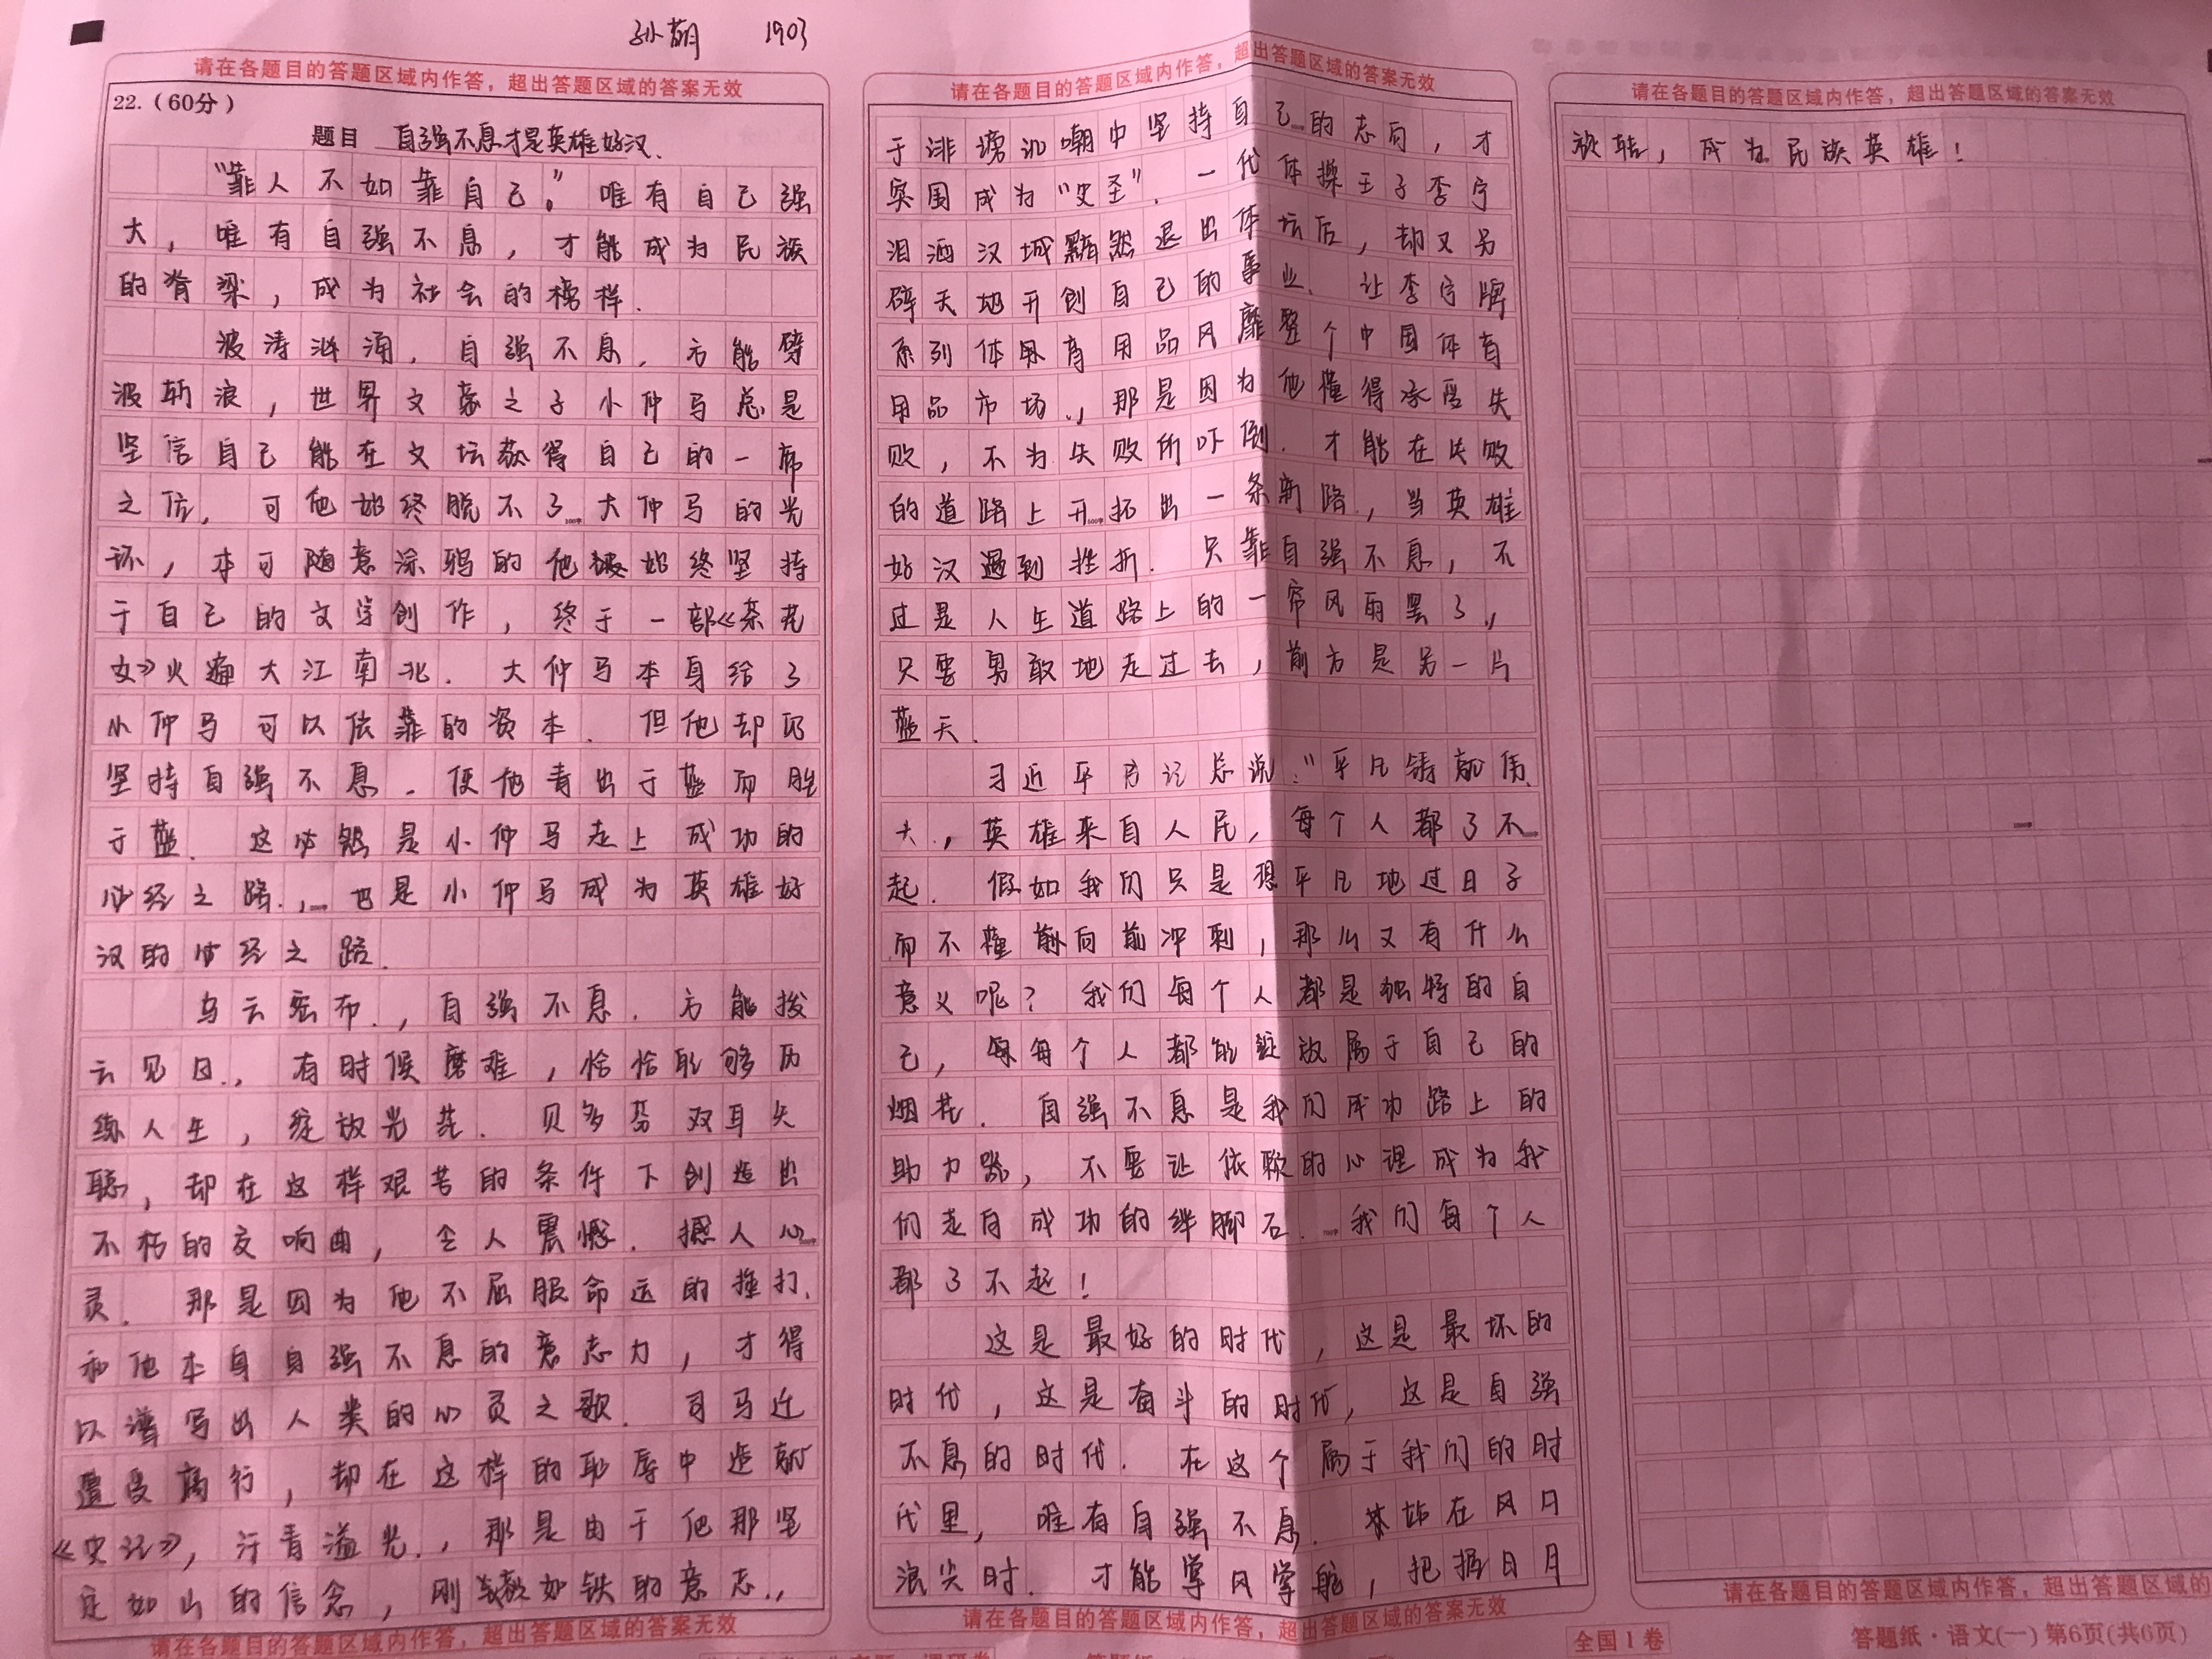 孙萌 1903
请在各题目的答题区域内作答，超出答题区域的答案无效
22.（60分）
题目 自强不息才是英雄好汉.
“靠人不如靠自己。”唯有自己强
大，唯有自强不息，才能成为民族
的脊梁，成为社会的榜样.
波涛汹涌，自强不息，方能劈
波斩浪，世界文豪之子小仲马总是
坚信自己能在文坛获得自己的一席
之位，可他始终脱不了大仲马的光
环，本可随意涂鸦的他始终坚持
于自己的文学创作，终于一部《茶花
女》火遍大江南北.大仲马本身给了
小仲马可以依靠的资本.但他却仍
坚持自强不息.使他青出于蓝而胜
于蓝.这必然是小仲马走上成功的
必经之路.，也是小仲马成为英雄好
汉的必经之路.
乌云密布.，自强不息.方能拨
云见日.，有时候磨难，恰恰能够历
练人生，绽放光芒.贝多芬双耳失
聪，却在这样艰苦的条件下创造出
不朽的交响曲，令人震憾.撼人心
灵.那是因为他不屈服命运的捶打.
和他本身自强不息的意志力，才得
以谱写出人类的心灵之歌.司马迁
遭受腐行，却在这样的耻辱中造就
《史记》，汗青溢光.，那是由于他那坚
定如山的信念，刚毅如铁的意志.，
请在各题目的答题区域内作答，超出答题区域的答案无效
请在各题目的答题区域内作答，超出答题区域的答案无效
于诽谤讥嘲中坚持自己的志向，才
突围成为“史圣”.一代体操王子李宁
泪洒汉城黯然退出体坛后，却又另
辟天地开创自己的事业.让李宁牌
系列体育用品风靡整个中国体育
用品市场.，那是因为他懂得承受失
败，不为失败所吓倒.才能在失败
的道路上开拓出一条新路.，当英雄
好汉遇到挫折.只靠自强不息，不
过是人生道路上的一帘风雨罢了.，
只要勇敢地走过去，前方是另一片
蓝天.
习近平书记总说：“平凡铸就伟
大.，英雄来自人民，每个人都了不
起.假如我们只是想平凡地过日子
而不懂向前冲刺，那么又有什么
意义呢？我们每个人都是独特的自
己，每个人都能绽放属于自己的
烟花.自强不息是我们成功路上的
助力器，不要让依赖的心理成为我
们走向成功的绊脚石.我们每个人
都了不起！
这是最好的时代，这是最坏的
时代，这是奋斗的时代，这是自强
不息的时代.在这个属于我们的时
代里，唯有自强不息.站在风口
浪尖时.才能掌风掌舵，把握日月
请在各题目的答题区域内作答，超出答题区域的答案无效
请在各题目的答题区域内作答，超出答题区域的答案无效
旋转，成为民族英雄！
请在各题目的答题区域内作答，超出答题区域的
全国1卷
答题纸·语文(一) 第6页(共6页)